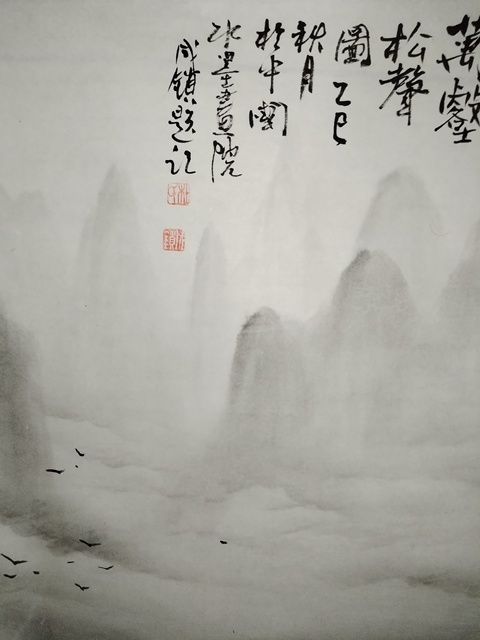 萬壑
松聲
圖乙巳
秋月
於中國
水墨畫院
成鎖題記